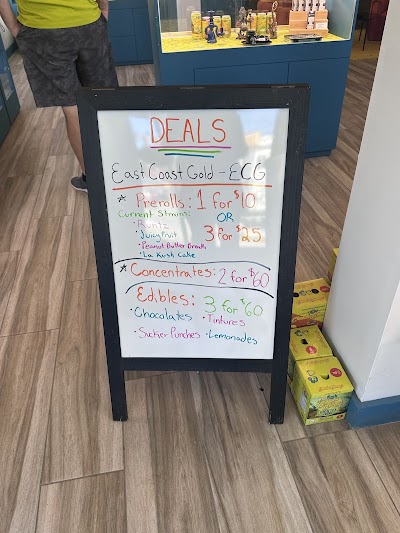 DEALS
East Coast Gold - ECG
* Prerolls: 1 for $10
Current Strains: OR
• Runtz
• Juicy Fruit 3 for $25
• Peanut Butter Breath
• La Kush Cake
* Concentrates: 2 for $60
Edibles: 3 for $60
• Chocolates • Tintures
• Sucker Punches • Lemonades